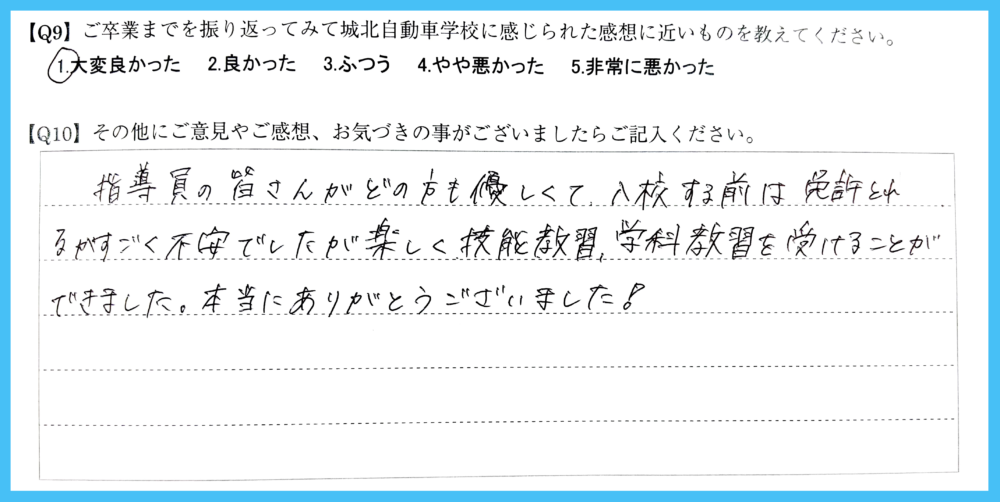 【Q9】ご卒業までを振り返ってみて城北自動車学校に感じられた感想に近いものを教えてください。
1.大変良かった 2.良かった 3.ふつう 4.やや悪かった 5.非常に悪かった
【Q10】その他にご意見やご感想、お気づきの事がございましたらご記入ください。
指導員の皆さんがどの方も優しくて、入校する前は免許とれ
るがすごく不安でしたが楽しく技能教習,学科教習を受けることが
できました。本当にありがとうございました!